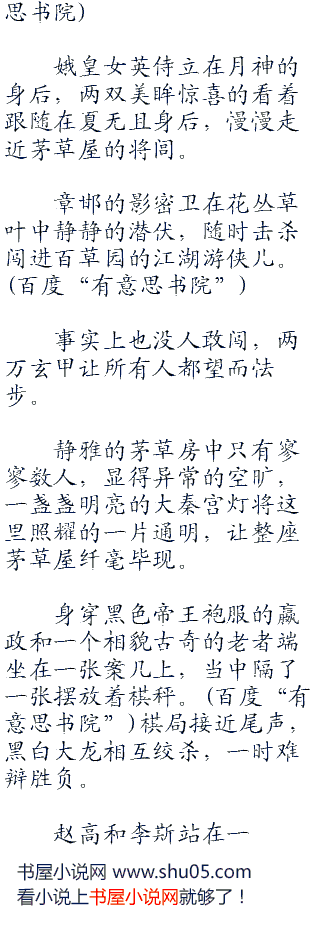 思书院）
娥皇女英侍立在月神的
身后，两双美眸惊喜的看着
跟随在夏无且身后，慢慢走
近茅草屋的将闾。
章邯的影密卫在花丛草
叶中静静的潜伏，随时击杀
闯进百草园的江湖游侠儿。
(百度“有意思书院”)
事实上也没人敢闯，两
万玄甲让所有人都望而怯
步。
静雅的茅草房中只有寥
寥数人，显得异常的空旷，
一盏盏明亮的大秦宫灯将这
里照耀的一片通明，让整座
茅草屋纤毫毕现。
身穿黑色帝王袍服的嬴
政和一个相貌古奇的老者端
坐在一张案几上，当中隔了
一张摆放着棋秤。(百度“有
意思书院”)棋局接近尾声，
黑白大龙相互绞杀，一时难
辩胜负。
赵高和李斯站在一
书屋小说网 www.shu05.com
看小说上书屋小说网就够了！